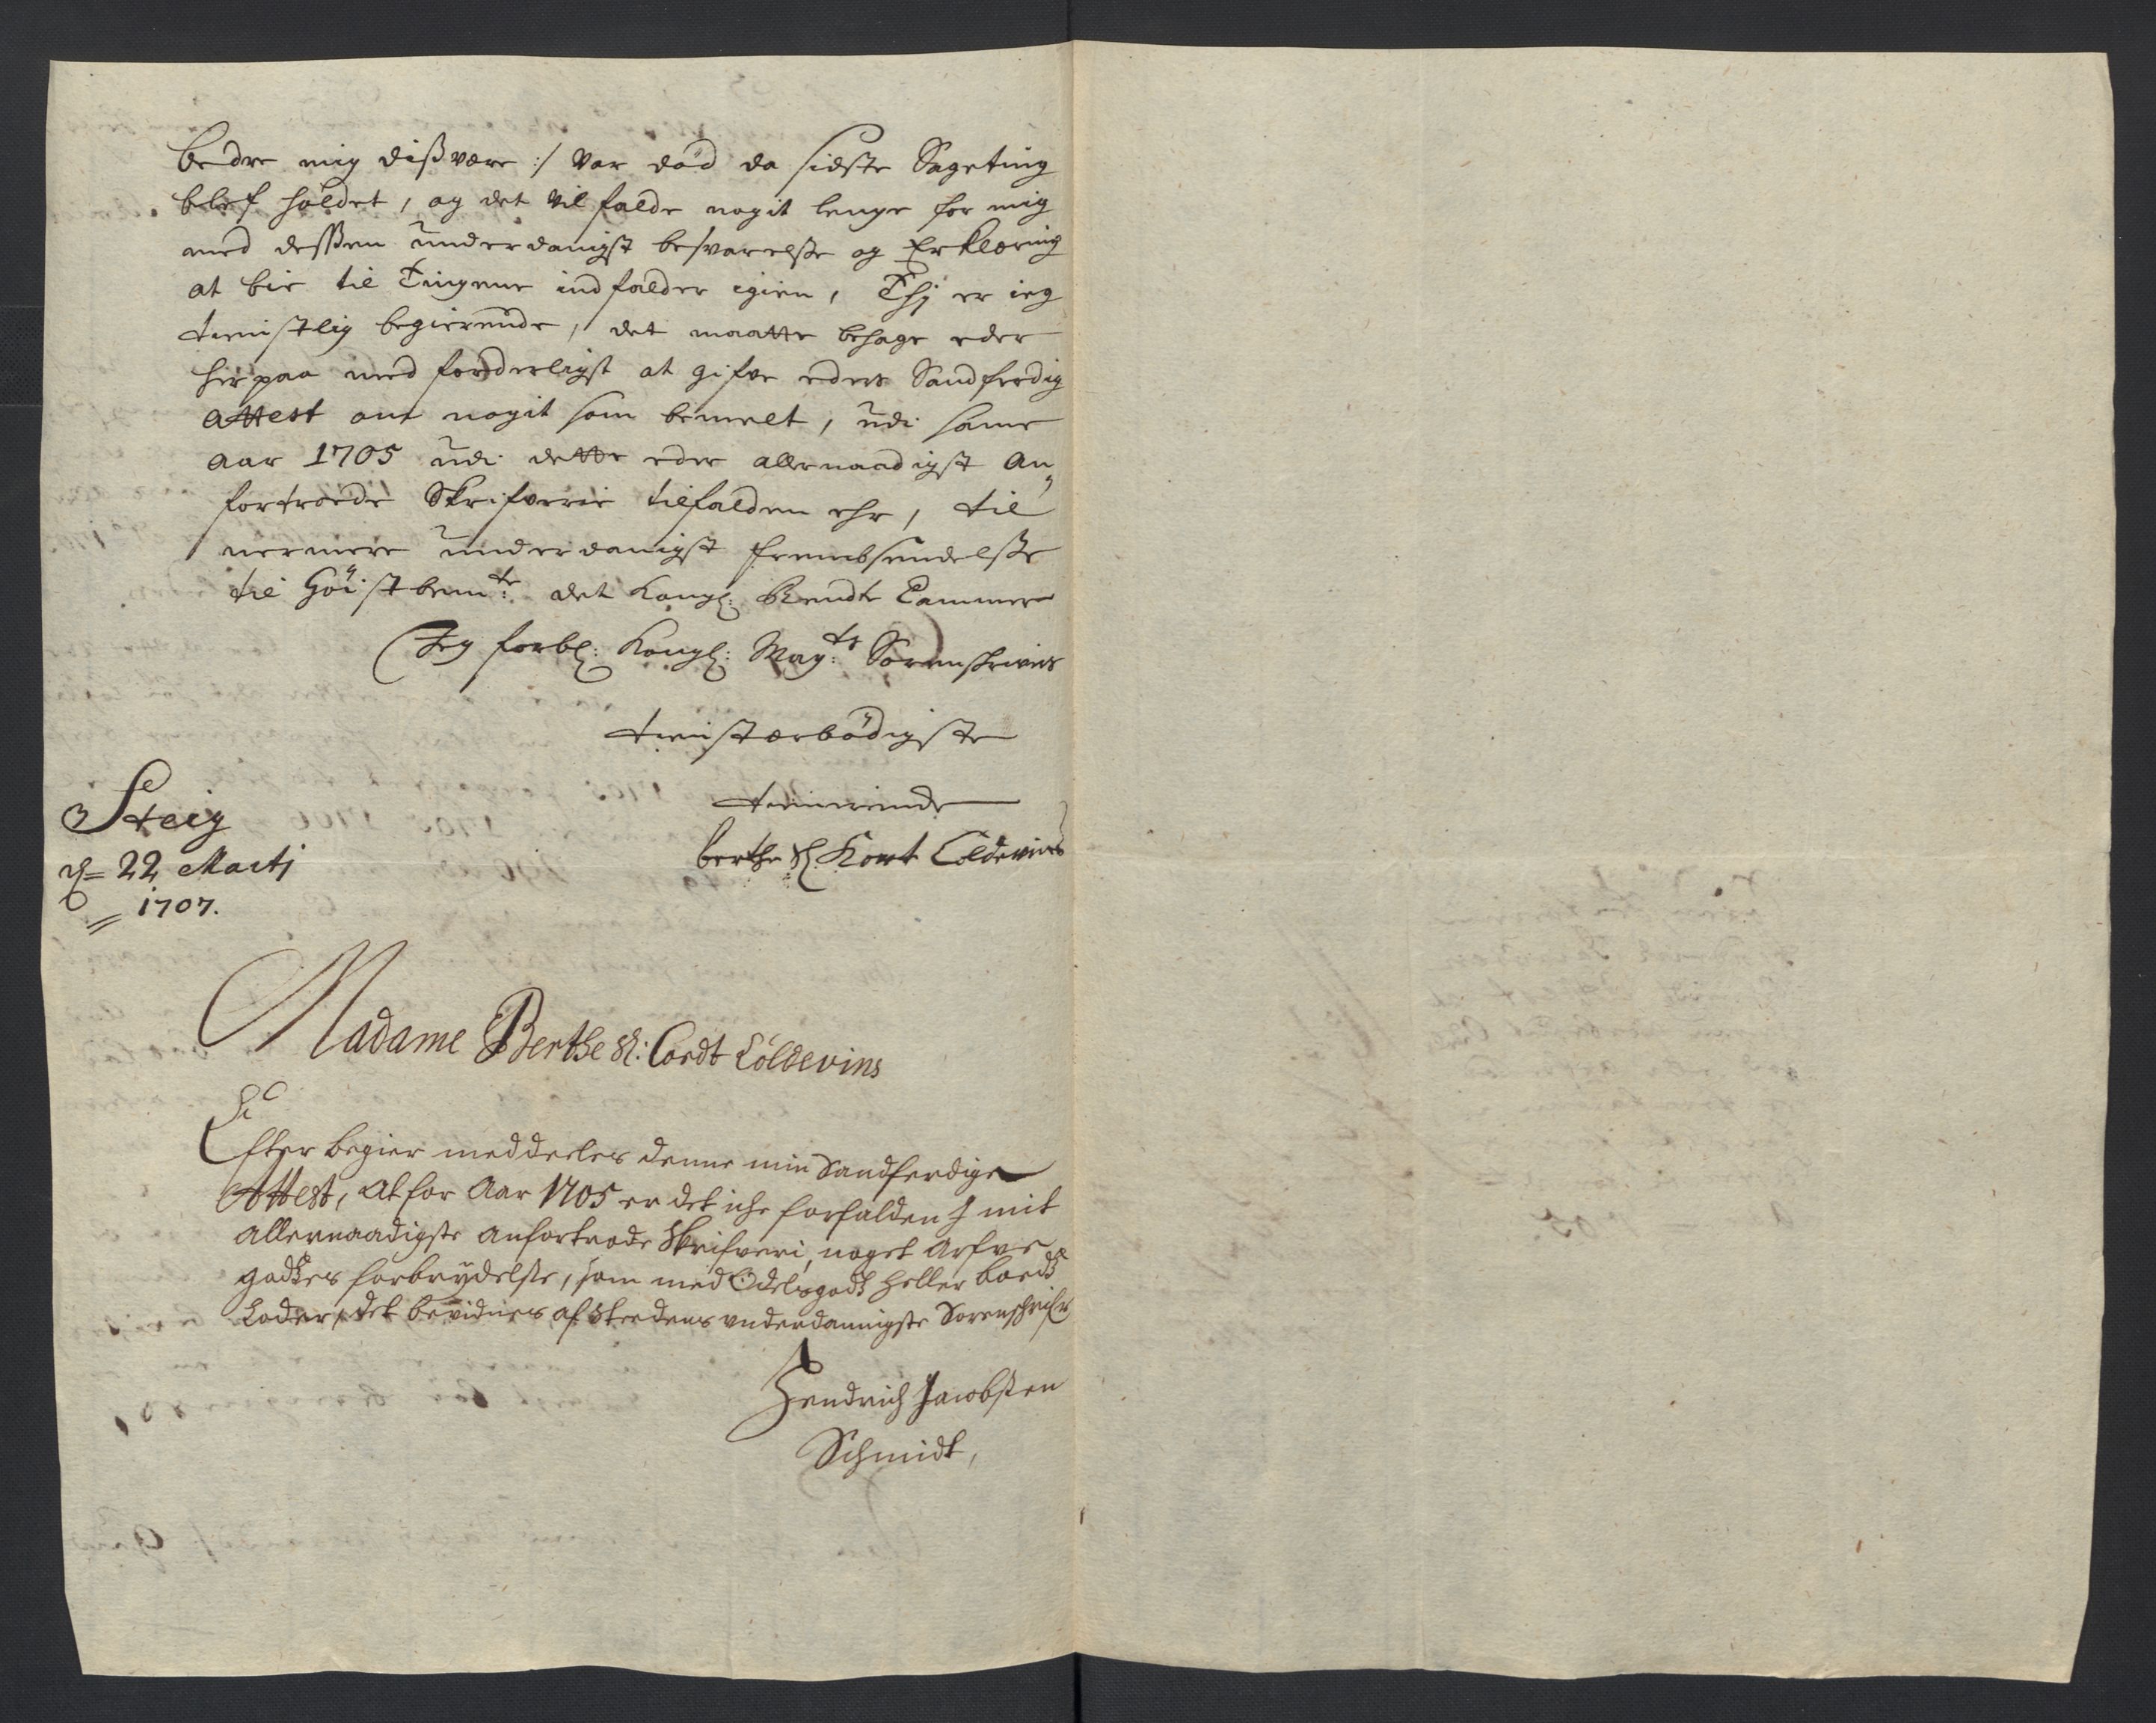 bedre mig dißvære :/ var död da sidste Sageting
blef holdet, og det vil falde nogit lenge for mig
med deßsen underdanigst besvarelße og Erklæring
at bie til Tingene indfalder igien, Thj er ieg
tienstlig begierende, det maatte behage eder
her paa med forderligst at gifve eders Sandferdig
Attest om nogit som bemelt, udi same
aar 1705 udi dette eder allernaadigst An„
fortroede Skrifverie tilfalden ehr, til
nermere underdanigst frembsendelße
til Höistbem:te det Kongl: Rendte Cammer
Jeg forbl: Kongl: May:ts Sorenskrivers
tienstærbödigste
tienerinde
berthe Sl. Kort Coldevins
Steig
d= 22 Martj
1707.
Madame Berthe Sl: Cordt Coldevins
Efter begier meddeeles denne min Sandferdige
Attest, at for Aar 1705 er det iche forfalden J mit
allernaadigste anfortrode Skrifveri, noget Arfve
godtzes forbrydelße, som med Odelsgodtz heller boedtz
Loder, det bevidnes af Stedens underdannigste Sorenschrifr
Hendrich Jacobsen
Schmidt,